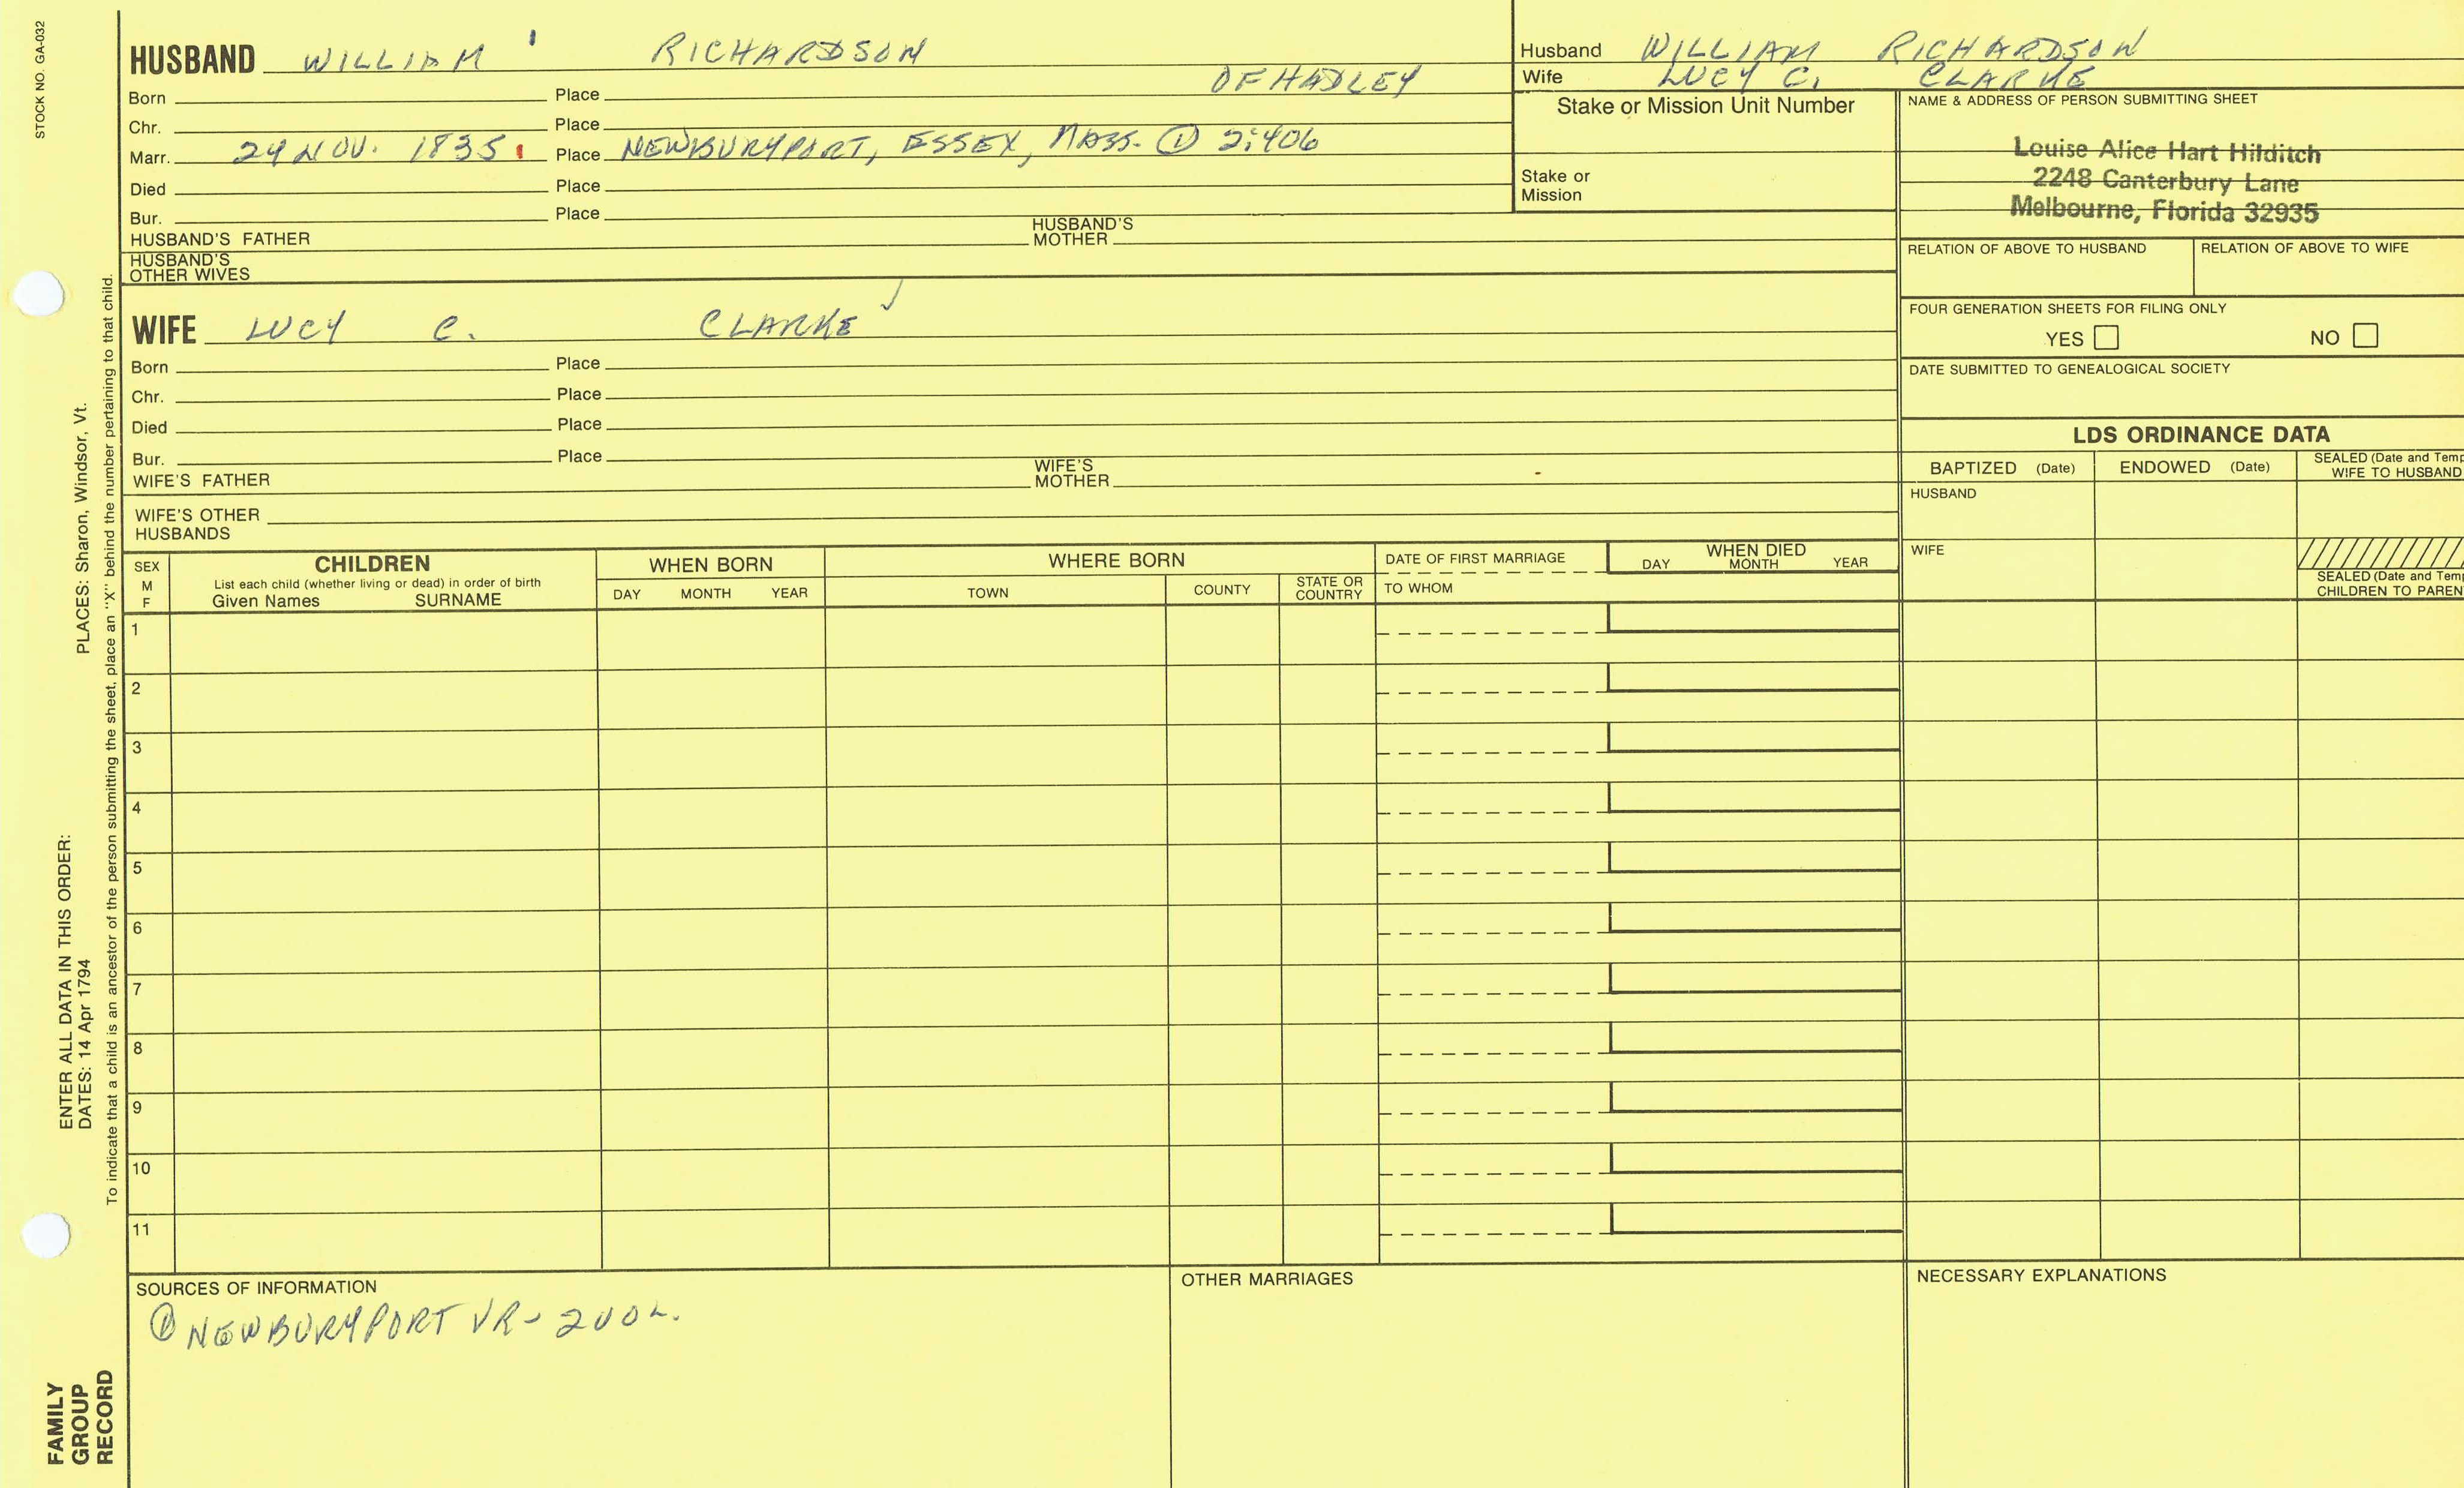 STOCK NO. GA-032
HUSBAND WILLIAM RICHARDSON
Born Place OF HADLEY
Chr. Place
Marr. 24 NOV. 1835 Place NEWBURYPORT, ESSEX, MASS. ① 2:406
Died Place
Bur. Place
HUSBAND'S FATHER HUSBAND'S MOTHER
HUSBAND'S OTHER WIVES
WIFE LUCY C. CLARKE
Born Place
Chr. Place
Died Place
Bur. Place
WIFE'S FATHER WIFE'S MOTHER
WIFE'S OTHER HUSBANDS
Husband WILLIAM RICHARDSON
Wife LUCY C. CLARKE
Stake or Mission Unit Number
Stake or Mission
NAME & ADDRESS OF PERSON SUBMITTING SHEET
Louise Alice Hart Hilditch
2248 Canterbury Lane
Melbourne, Florida 32935
RELATION OF ABOVE TO HUSBAND RELATION OF ABOVE TO WIFE
FOUR GENERATION SHEETS FOR FILING ONLY
YES NO
DATE SUBMITTED TO GENEALOGICAL SOCIETY
LDS ORDINANCE DATA
BAPTIZED (Date) ENDOWED (Date) SEALED (Date and Temp
WIFE TO HUSBAND
HUSBAND
WIFE
SEALED (Date and Temp
CHILDREN TO PAREN
SEX M F
CHILDREN
List each child (whether living or dead) in order of birth
Given Names SURNAME
WHEN BORN
DAY MONTH YEAR
WHERE BORN
TOWN COUNTY STATE OR COUNTRY
DATE OF FIRST MARRIAGE
TO WHOM
WHEN DIED
DAY MONTH YEAR
1
2
3
4
5
6
7
8
9
10
11
SOURCES OF INFORMATION
① NEWBURYPORT VR-
OTHER MARRIAGES
NECESSARY EXPLANATIONS
PLACES: Sharon, Windsor, Vt.
ENTER ALL DATA IN THIS ORDER:
DATES: 14 Apr 1794
To indicate that a child is an ancestor of the person submitting the sheet, place an "X" behind the number pertaining to that child.
FAMILY
GROUP
RECORD